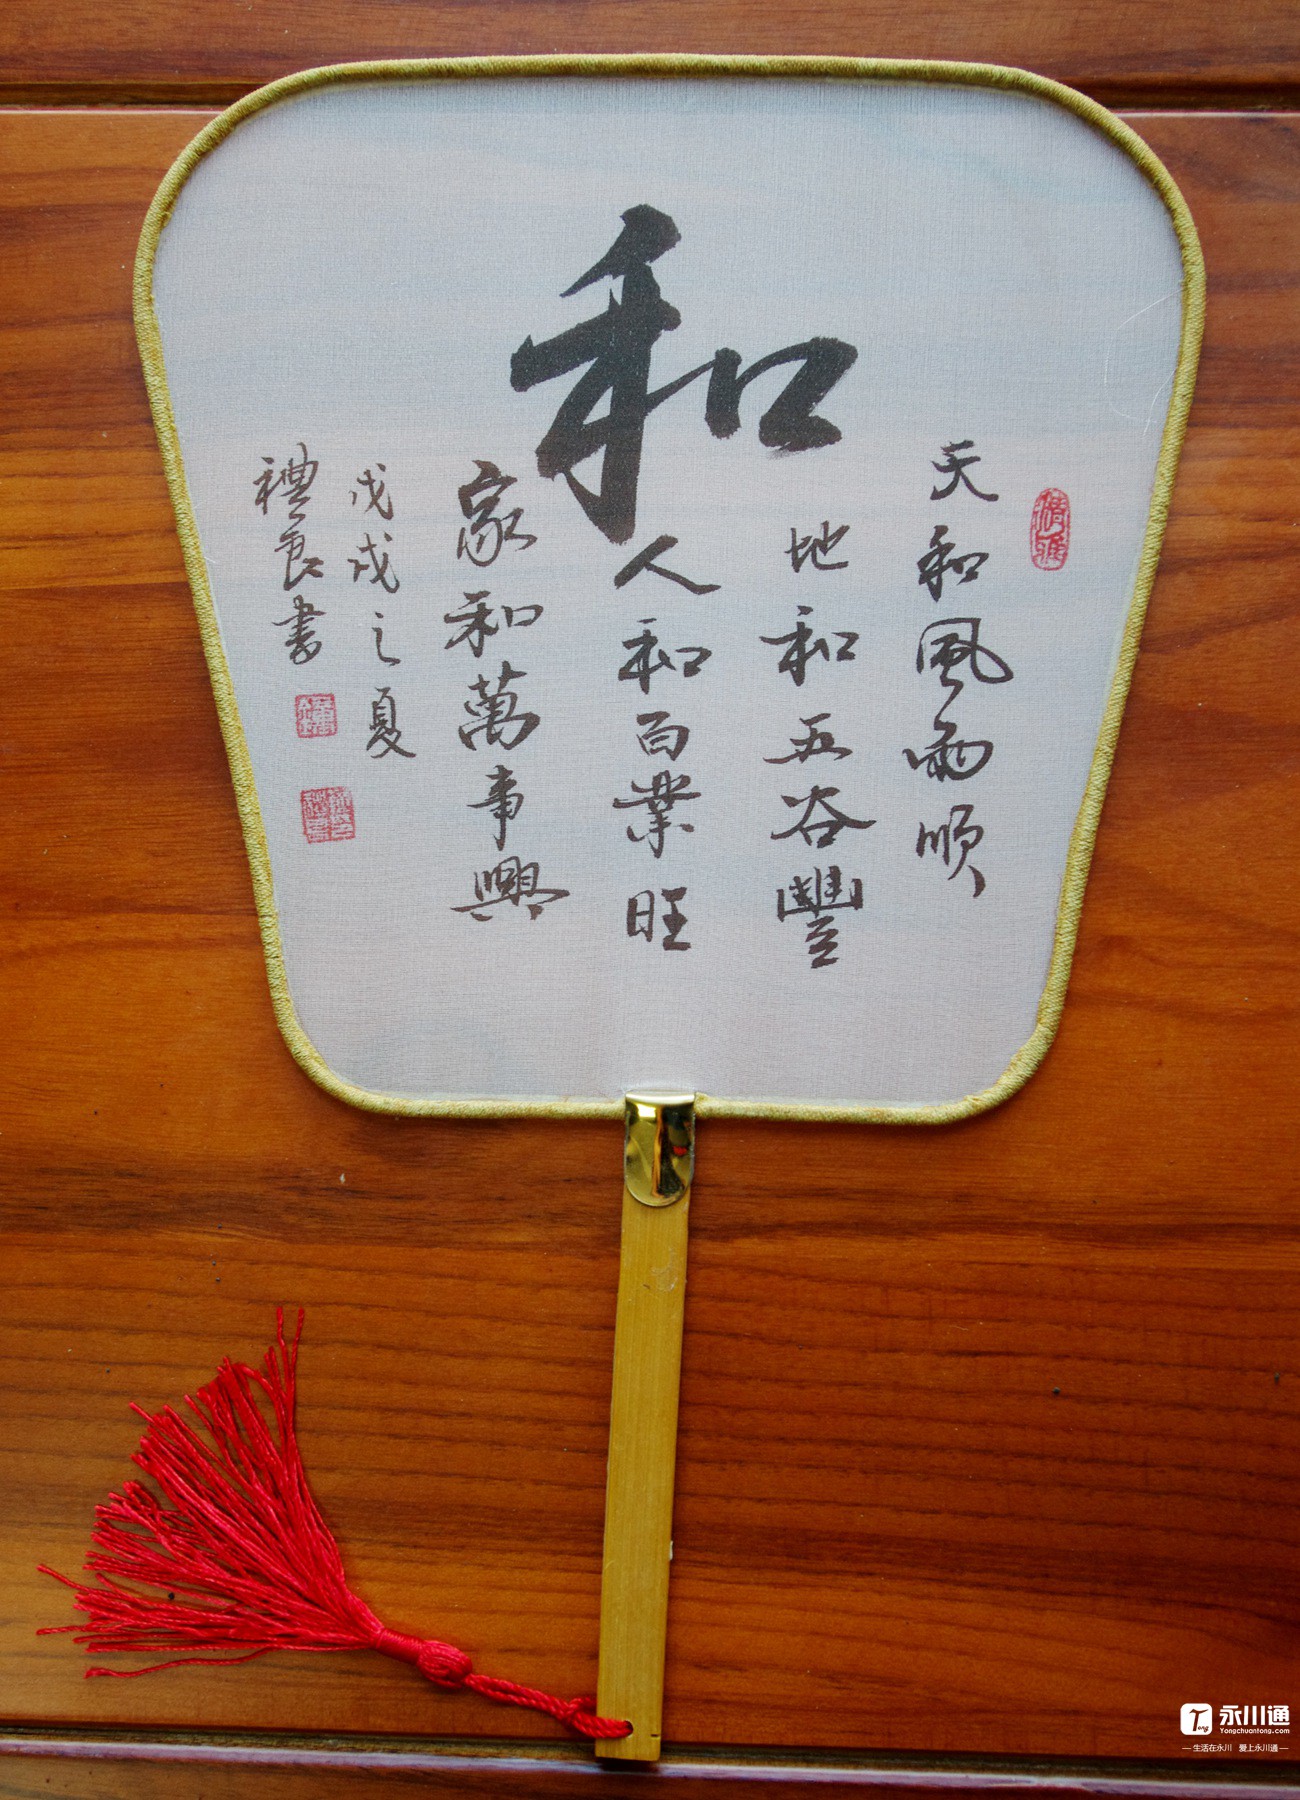 和
天和風雨順
地和五谷豐
人和百業旺
家和萬事興
戊戌之夏
禮良書
永川通
Yongchuantong.com
生活在永川 爱上永川通